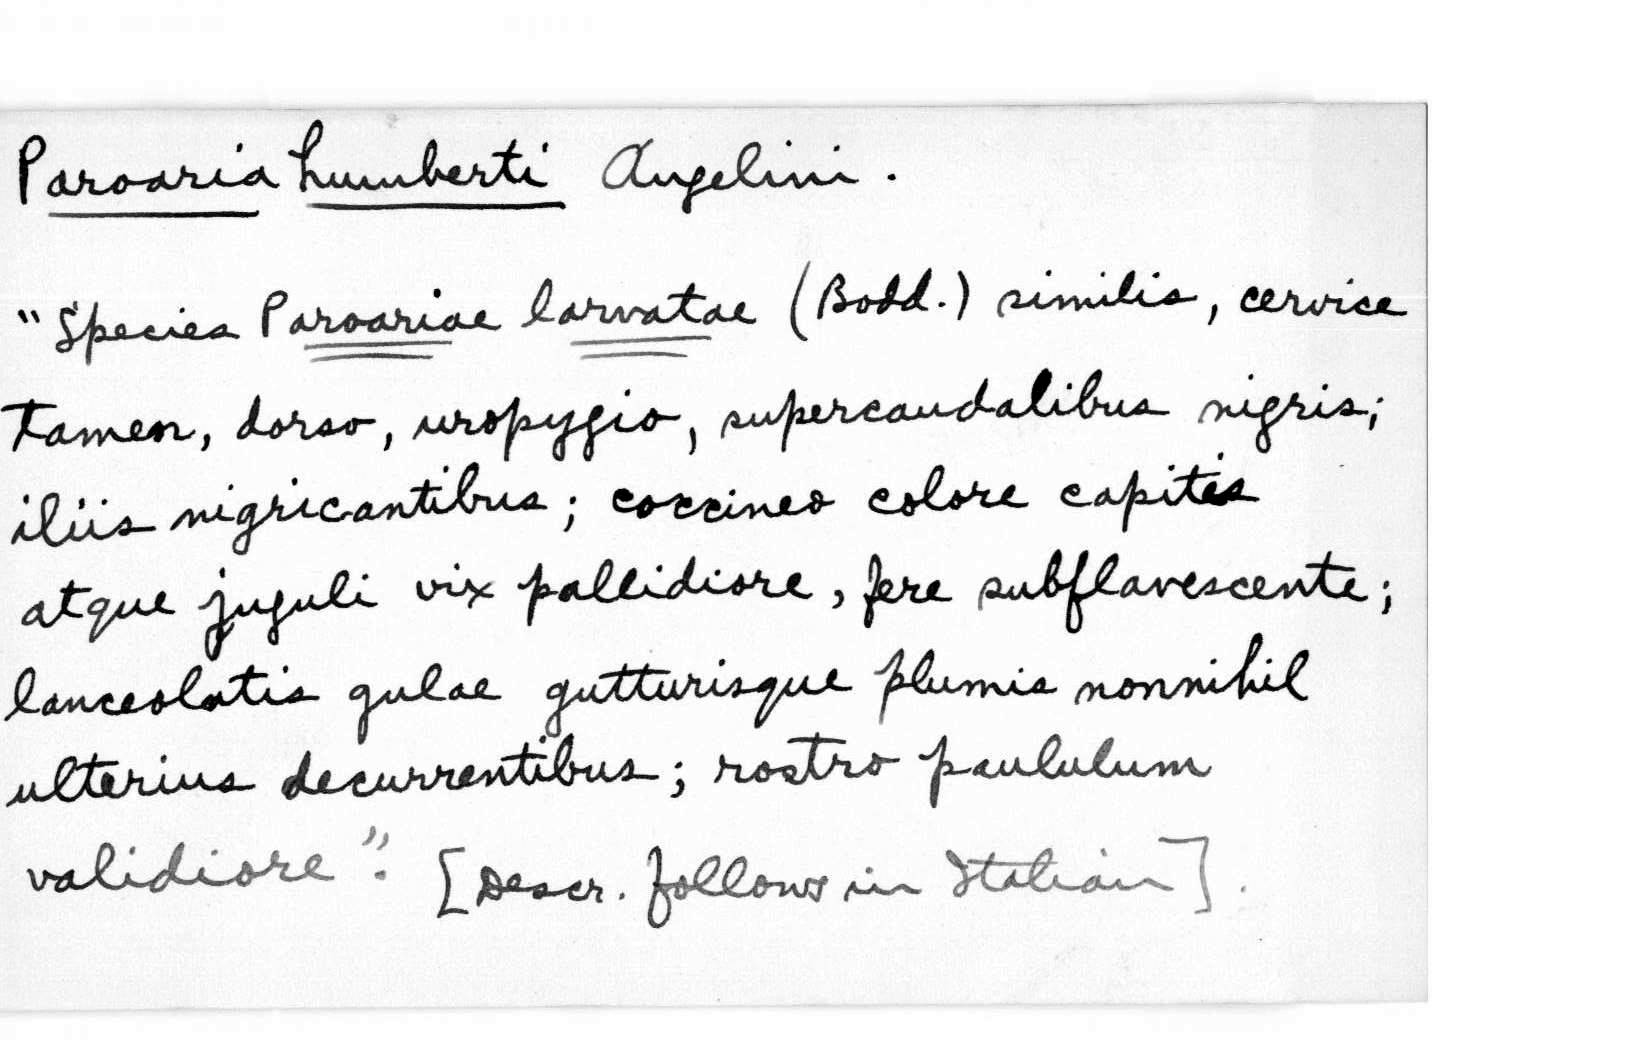 Paroaria humberti Angelini.
"Species Paroariae larvatae (Bodd.) similis, cervice
tamen, dorso, uropygio, supercaudalibus nigris;
iliis nigricantibus; coccineo colore capitis
atque juguli vix pallidiore, fere subflavescente;
lanceolatis gulae gutturisque plumis nonnihil
ulterius decurrentibus; rostro paululum
validiore". [Descr. follows in Italian].